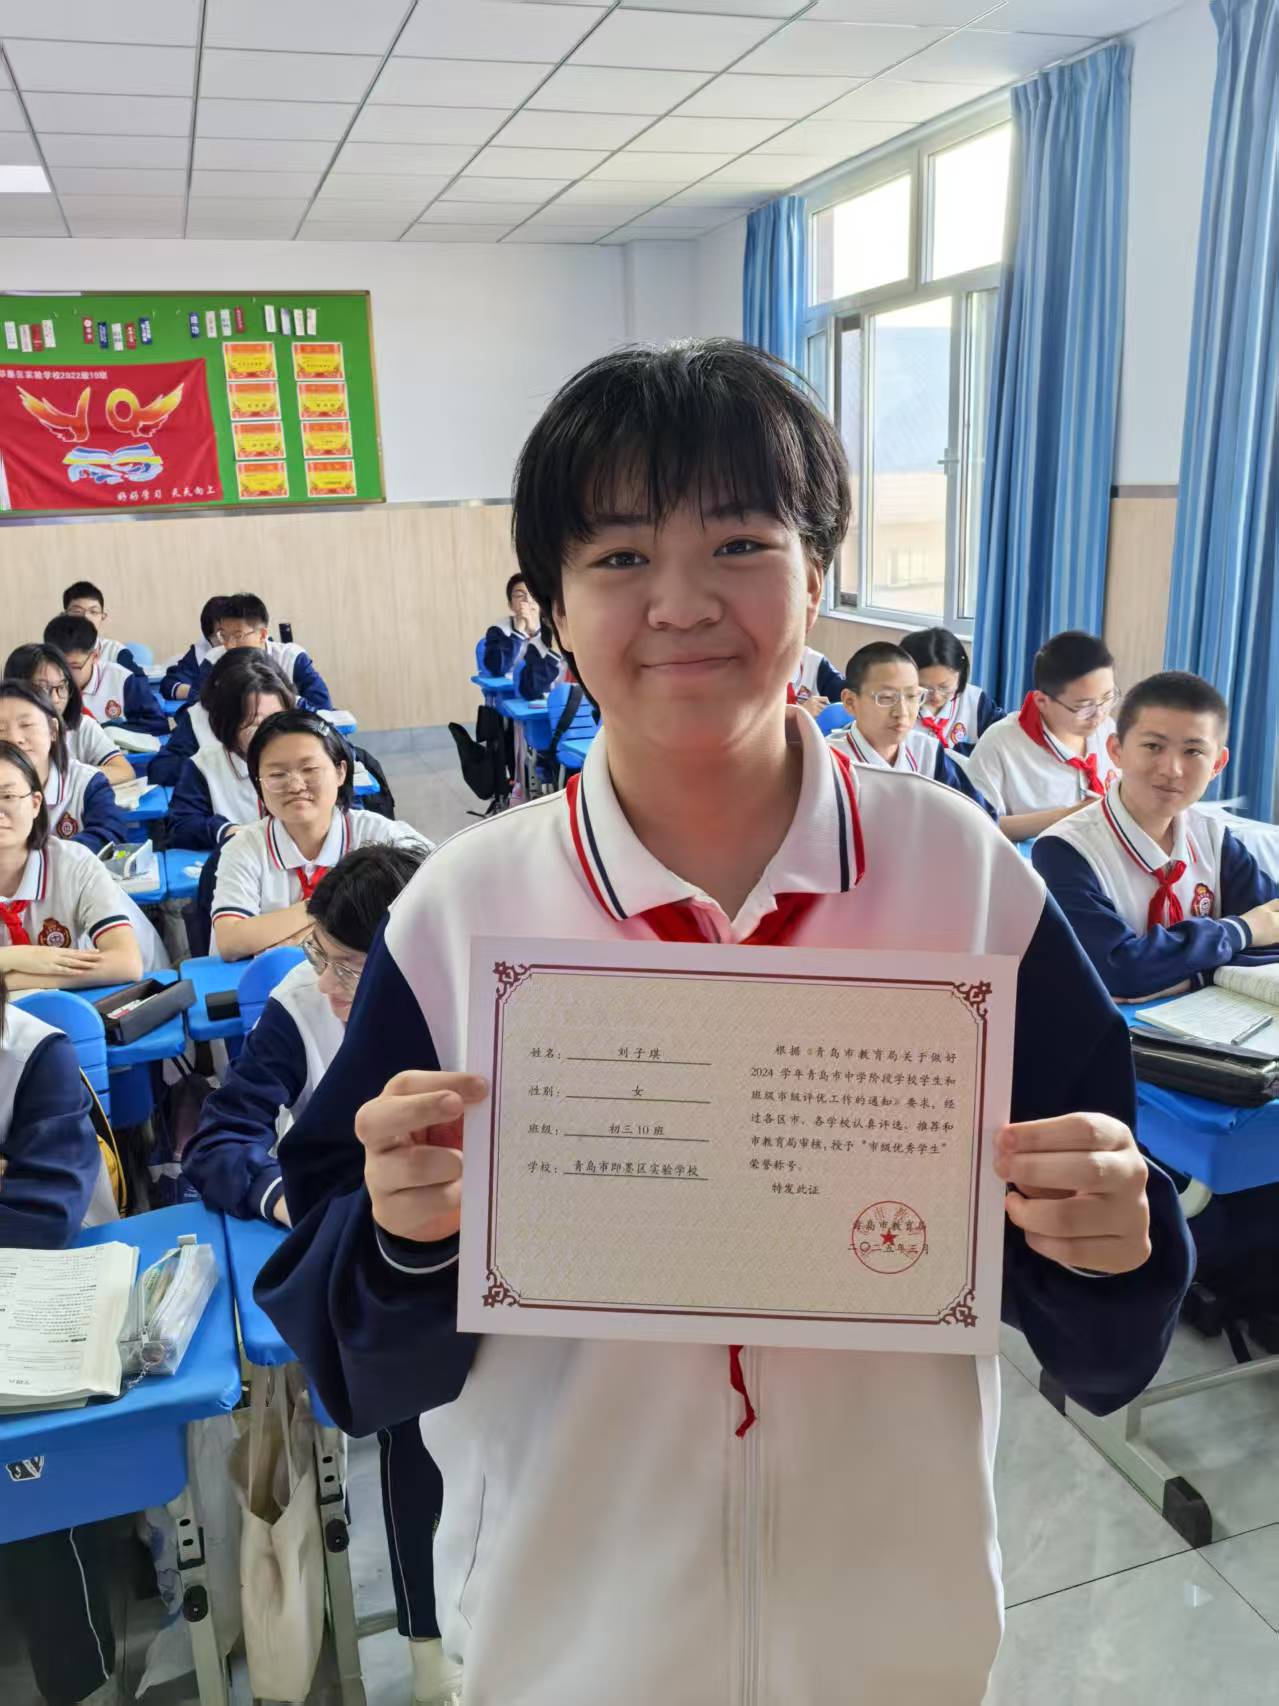 成功
即墨区实验学校2022级10班
好好学习 天天向上
姓名：刘子琪
性别：女
班级：初三10班
学校：青岛市即墨区实验学校
根据《青岛市教育局关于做好
2024 学年青岛市中学阶段学校学生和
班级市级评优工作的通知》要求，经
过各区市、各学校认真评选、推荐和
市教育局审核，授予“市级优秀学生”
荣誉称号。
特发此证
青岛市教育局
二〇二五年三月